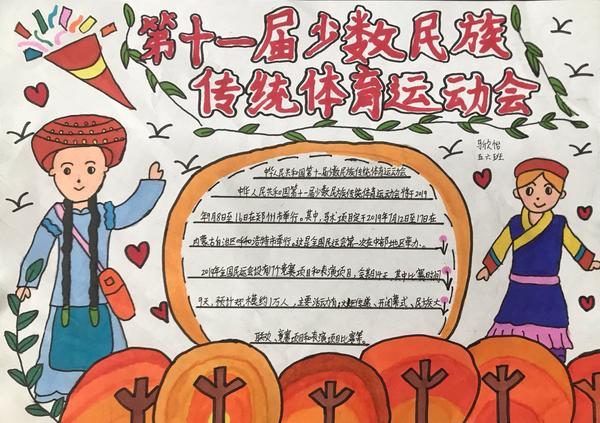 第十一届少数民族
传统体育运动会
五六班
中华人民共和国第十一届少数民族传统体育运动会
中华人民共和国第十一届少数民族传统体育运动会将于2019
年9月8日至16日在郑州市举行。其中,马术项目定于2019年7月12日至17日在
内蒙古自治区呼和浩特市举行。这是全国民运会第一次在中部地区举办。
2019年全国民运会设有17个竞赛项目和表演项目,会期
9天,预计规模约1万人,主要活动有:火炬传递、开闭幕式、民族大
联欢、竞赛项目和表演项目比赛等。